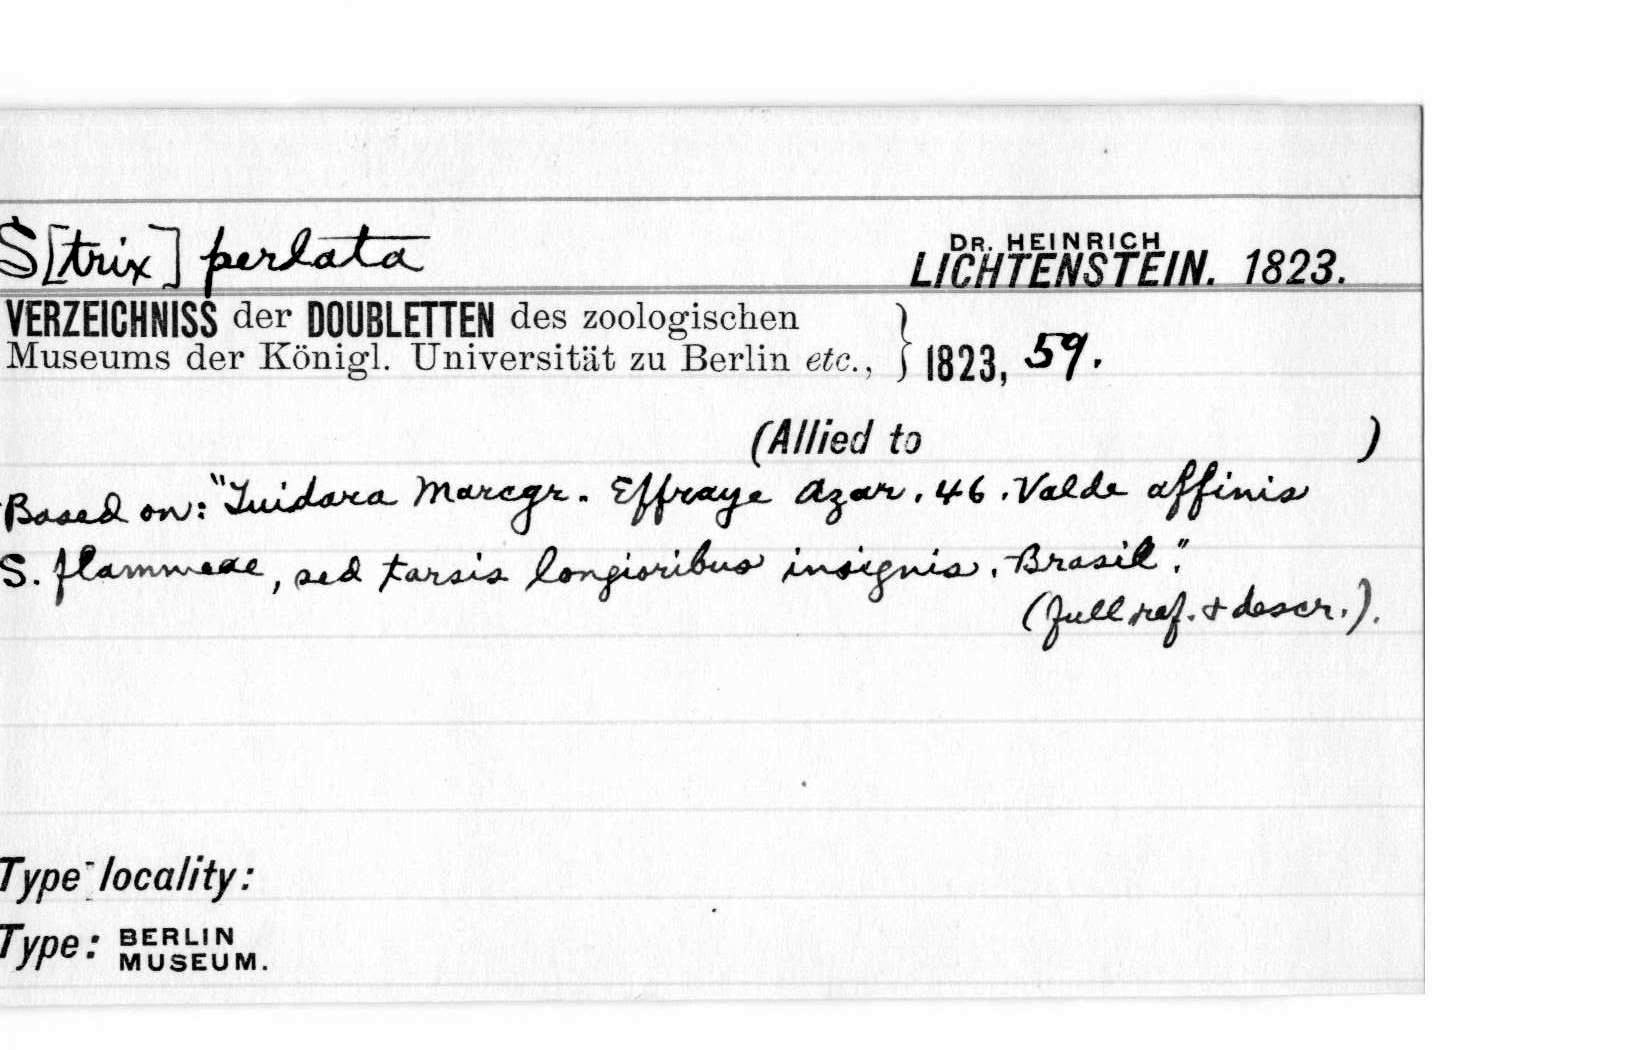 S[trix] perlata
DR. HEINRICH
LICHTENSTEIN. 1823.
VERZEICHNISS der DOUBLETTEN des zoologischen
Museums der Königl. Universität zu Berlin etc., } 1823, 59.
(Allied to )
Based on: "Tuidara Marcgr. Effraye Azar. 46. Valde affinis
S. flammeae, sed tarsis longioribus insignis. Brasil."
(full ref. + descr.).
Type-locality:
Type: BERLIN
MUSEUM.